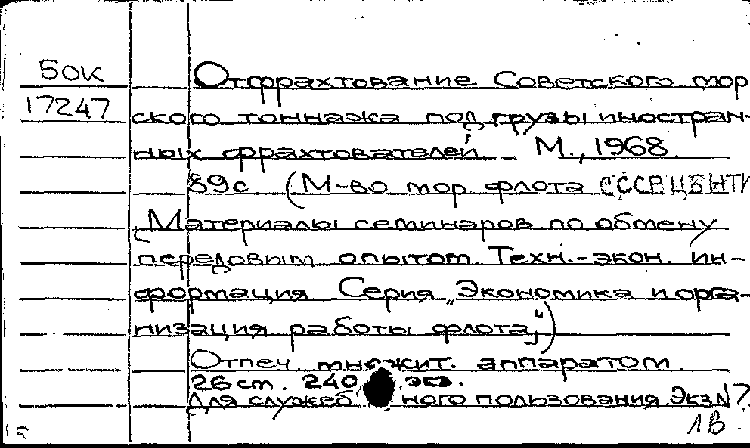 БОК
17247
Отфрахтование Советского мор
ского тоннажа под грузы иностран-
ных фрахтователей. _ М., 1968.
89с. (М-во мор. флота СССР. ЦБНТИ
(Материалы семинаров по обмену
передовым опытом. Техн.-экон. ин-
формация Серия „Экономика и орга-
низация работы флота")
Отпеч. множит. аппаратом.
26 ст. 240 экз.
Для служебного пользования Экз N7
1В